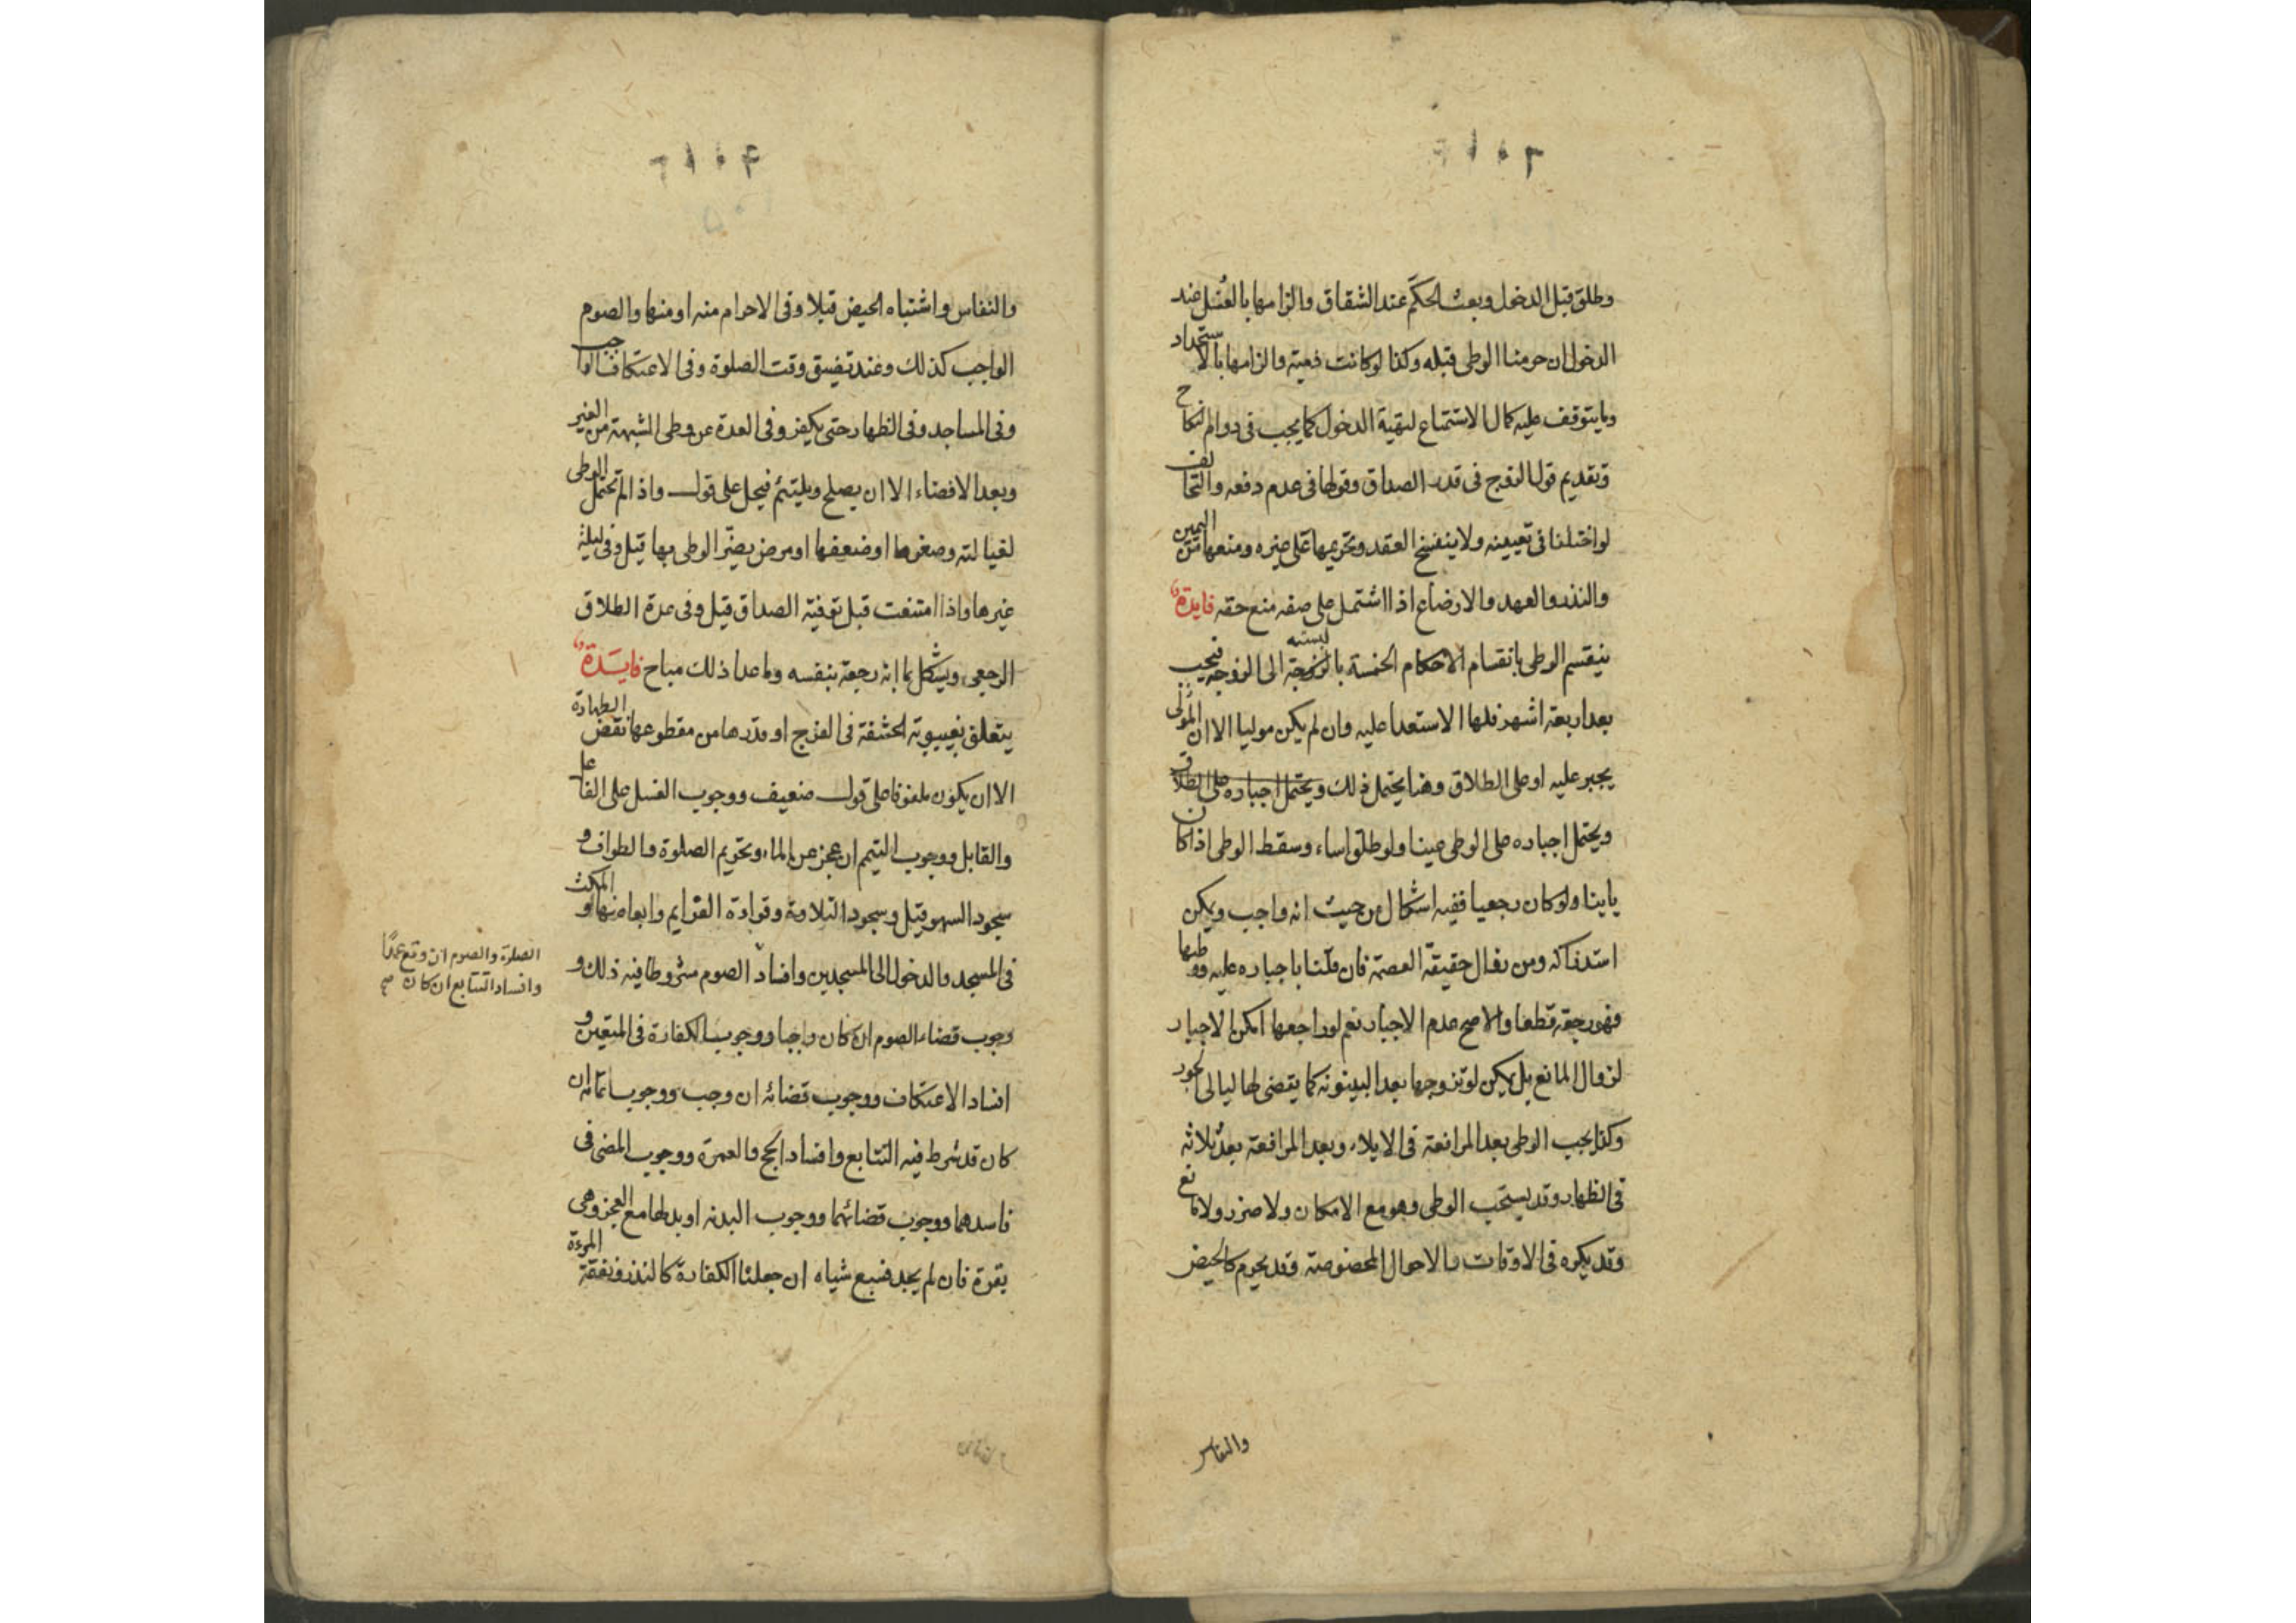 وطلق قبل الدخول وبعث الحكم عند الشقاق والزامها بالغسل عند
الدخول ان حرمنا الوطى قبله وكذا لو كانت ذمية والزامها بالاستحداد
وما يتوقف عليه كمال الاستمتاع لتهيّة الدخول كما يجب فى دوام النكاح
وتقديم قول الزوج فى قدر الصداق وقولها فى عدم دفعه والتحالف
لو اختلفا فى تعيينه ولا ينفسخ العقد وتحريمها على غيره ومنعها من اليمين
والنذر والعهد والارضاع اذا اشتمل على صفه منع حقه فايدة
ينقسم الوطى بانقسام الاحكام الخمسة بالنسبه الى الزوجه فيجب
بعد اربعة اشهر فلها الاستعدا عليه وان لم يكن موليا الا ان المولى
يجبر عليه او على الطلاق وهنا يحتمل ذلك ويحتمل اجباره على الطلاق
ويحتمل اجباره على الوطى عينا ولو طلق اساء وسقط الوطى اذا كان
باينا ولو كان رجعيا ففيه اشكال من حيث انه واجب ويمكن
استدراكه ومن زوال حقيقة العصمة فان قلنا باجباره عليه ووطيها
فهو رجعة قطعا والاصح عدم الاجبار نعم لو راجعها امكن الاجبار
لزوال المانع بل يمكن لو تزوجها بعد البينونة كما يقضى لها ليالى الجور
وكذا يجب الوطى بعد المرافعة فى الايلاء وبعد المرافعة بعد ثلاثه
فى الظهار وقد يستحب الوطى وهو مع الامكان ولا ضرر ولا مانع
وقد يكره فى الاوقات والاحوال المخصوصة وقد يحرم كالحيض
والنفاس
والنفاس واشتباه الحيض قبلا وفى الاحرام منه او منها والصوم
الواجب كذلك وعند تضيق وقت الصلوة وفى الاعتكاف الواجب
وفى المساجد وفى الظهار حتى يكفر وفى العدة عن وطى الشبهة من الغير
وبعد الافضاء الا ان يصلح ويلتئم فيحل على قول واذا لم تحتمل الوطى
لغيالته وصغرها او ضعفها او مرض يضر الوطى بها قيل وفى ليلة
غيرها واذا امتنعت قبل توفية الصداق قيل وفى عدة الطلاق
الرجعى ويشكل بما انه رجعة بنفسه وما عدا ذلك مباح فايدة
يتعلق بغيبوبة الحشفة فى الفرج او قدرها من مقطوعها نقض الطهارة
الا ان يكون ملفوفا على قول ضعيف ووجوب الغسل على الفاعل
والقابل ووجوب التيمم ان عجز عن الماء وتحريم الصلوة والطواف و
سجود السهو قيل وسجود التلاوة وقراءة العزايم وابعاضها والمكث
فى المسجد والدخول الى المسجدين وافساد الصوم مشروطا فيه ذلك و
الصلوة والصوم ان وقع عمدًا
وافساد التتابع ان كان صح
وجوب قضاء الصوم ان كان واجبا ووجوب الكفارة فى المتعين و
افساد الاعتكاف ووجوب قضائه ان وجب ووجوب اتمامه ان
كان قد شرط فيه التتابع وافساد الحج والعمرة ووجوب المضى فى
فاسدهما ووجوب قضائهما ووجوب البدنه او بدلها مع العجز وهى
بقرة فان لم يجد فسبع شياه ان جعلنا الكفارة كالنذر ونفقة المرءة